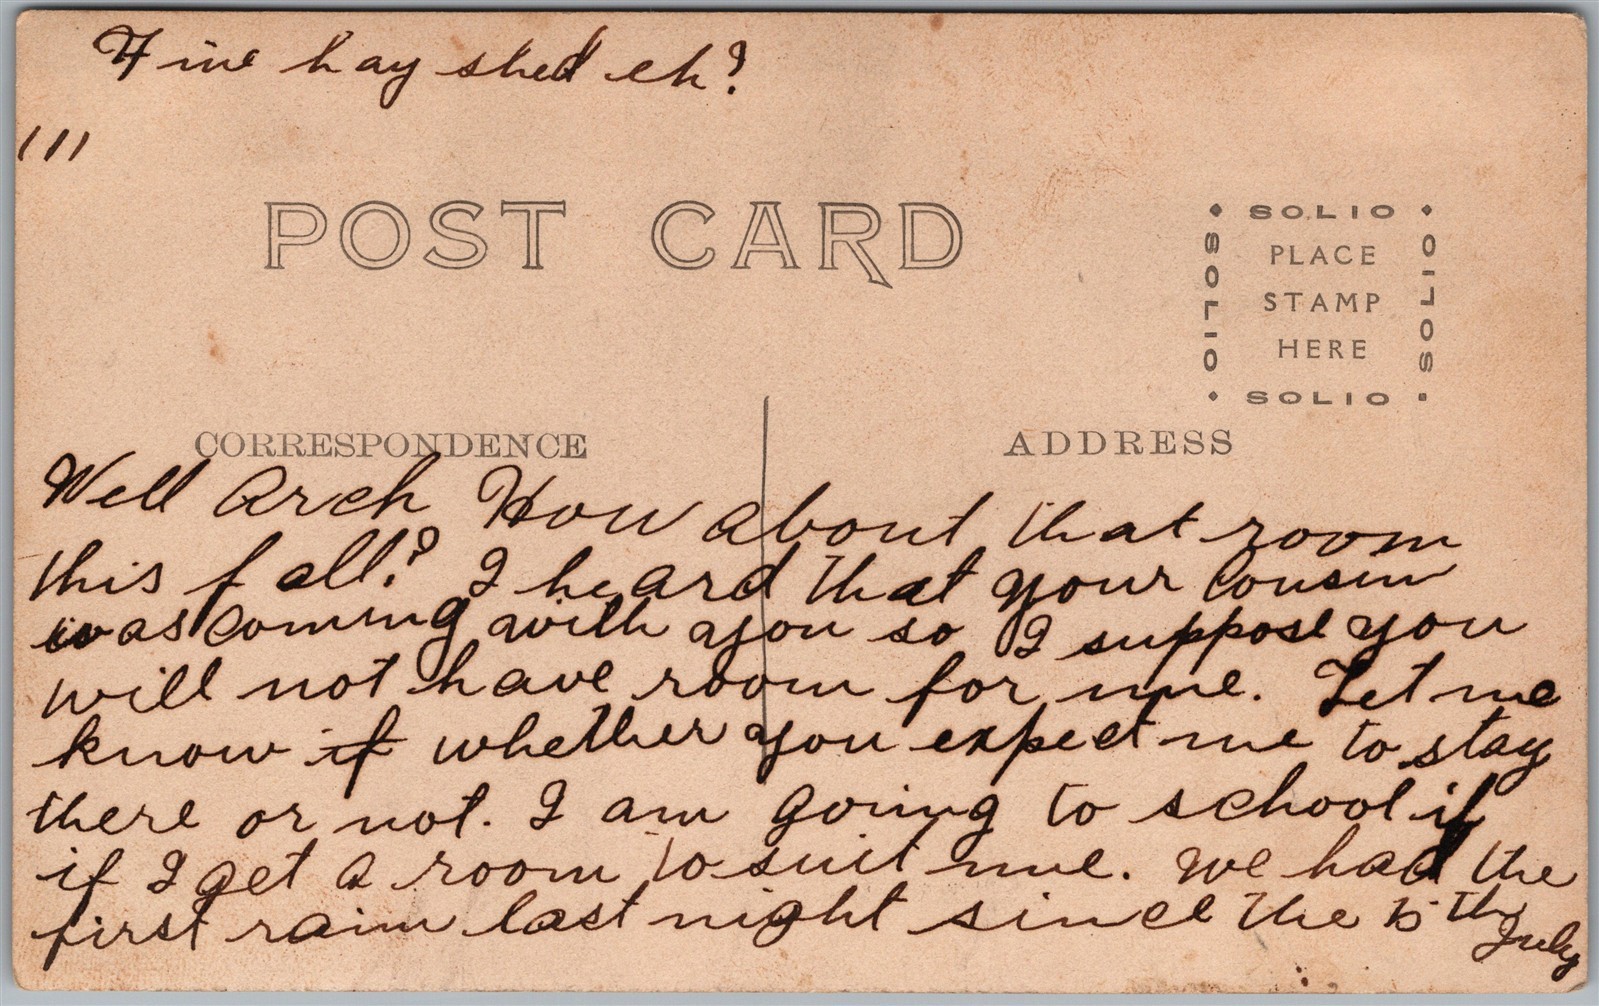 Fine hay shed eh?
111
POST CARD
SOLIO
SOLIO
PLACE
STAMP
HERE
SOLIO
SOLIO
CORRESPONDENCE
ADDRESS
Well Arch How about that room
this fall? I heard that your cousin
was coming with you so I suppose you
will not have room for me. Let me
know if whether you expect me to stay
there or not. I am going to school if
if I get a room to suit me. We had the
first rain last night since the 15th
July